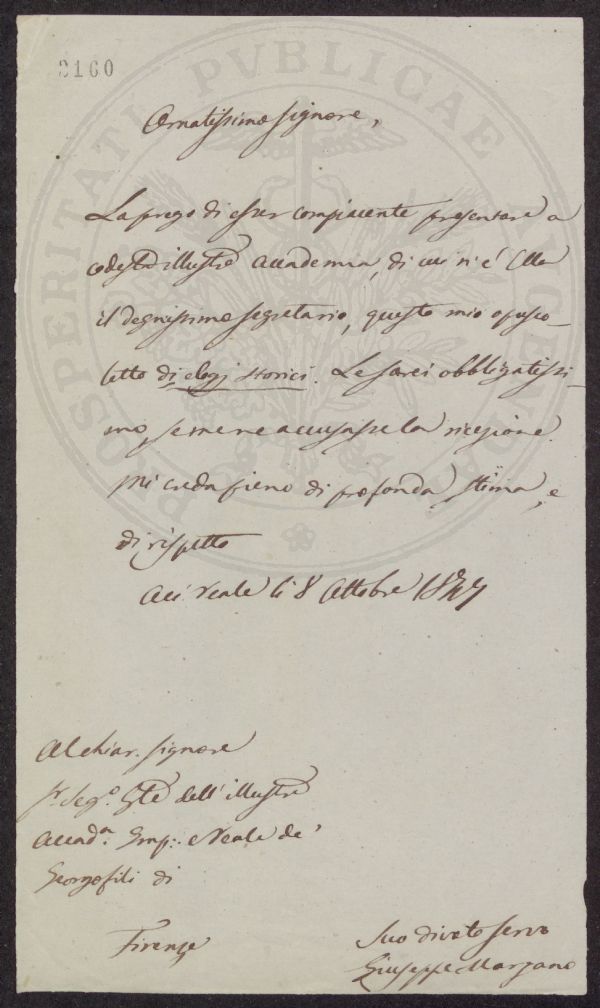 2160
PROSPERITATI PVBLICAE AVGENDAE
Ornatissimo Signore,
La prego di esser compiacente presentare a
codesta illustre Accademia, di cui n'é Ella
il degnissimo segretario, questo mio opusco-
letto di elogj storici. Le sarei obbligatissi-
mo, se me ne accusasse la ricezione.
Mi creda pieno di profonda stima, e
di rispetto
Aci Reale li 8 Ottobre 1847
Al chiar. Signore
Sr. Sego. Gle dell'illustre
Accada. Imp: e Reale de'
Georgofili di
Firenze
Suo divoto servo
Giuseppe Marzano